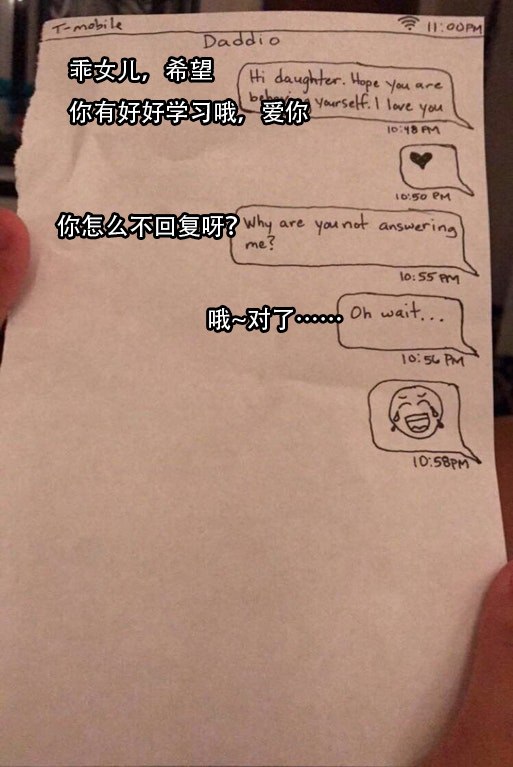 T-mobile 11:00PM
Daddio
乖女儿，希望
Hi daughter. Hope you are
你有好好学习哦，爱你
behaving yourself. I love you
10:48 PM
10:50 PM
你怎么不回复呀？
Why are you not answering
me?
10:55 PM
哦~对了……
Oh wait...
10:56 PM
10:58PM